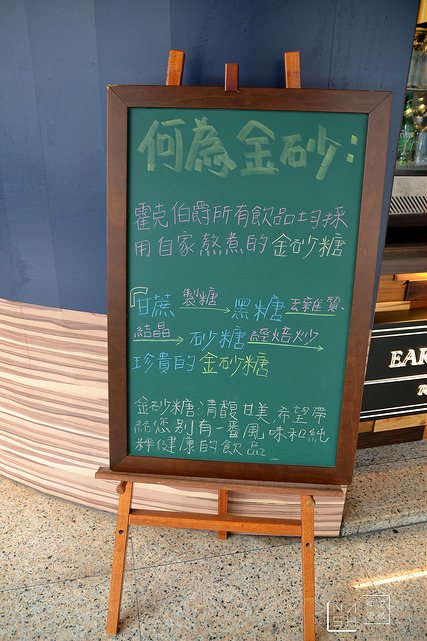 何為金砂：
霍克伯爵所有飲品均採
用自家熬煮的金砂糖
甘蔗 製糖 黑糖 去雜質、
結晶 砂糖 經焙炒
珍貴的金砂糖
金砂糖清馥甘美，希望帶
給您別有一番風味和純
粹健康的飲品
EAR